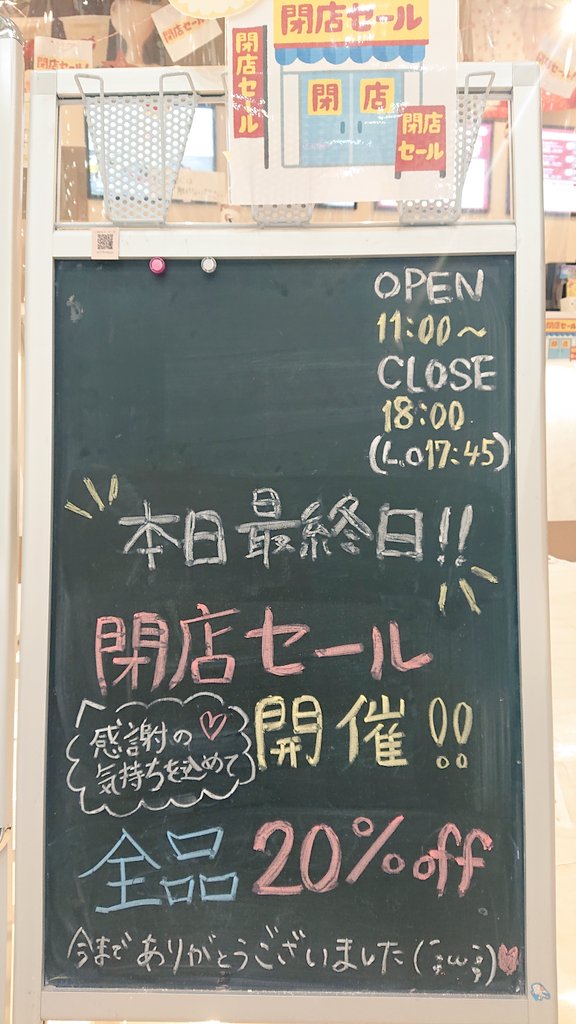 閉店セール
閉店セール
閉店セール
閉店
閉店
セール
閉店セール
OPEN
11:00～
CLOSE
18:00
(L.O17:45)
本日最終日!!
閉店セール
感謝の♡
気持ちを込めて
開催!!
全品20%off
今までありがとうございました(´;ω;`)♥